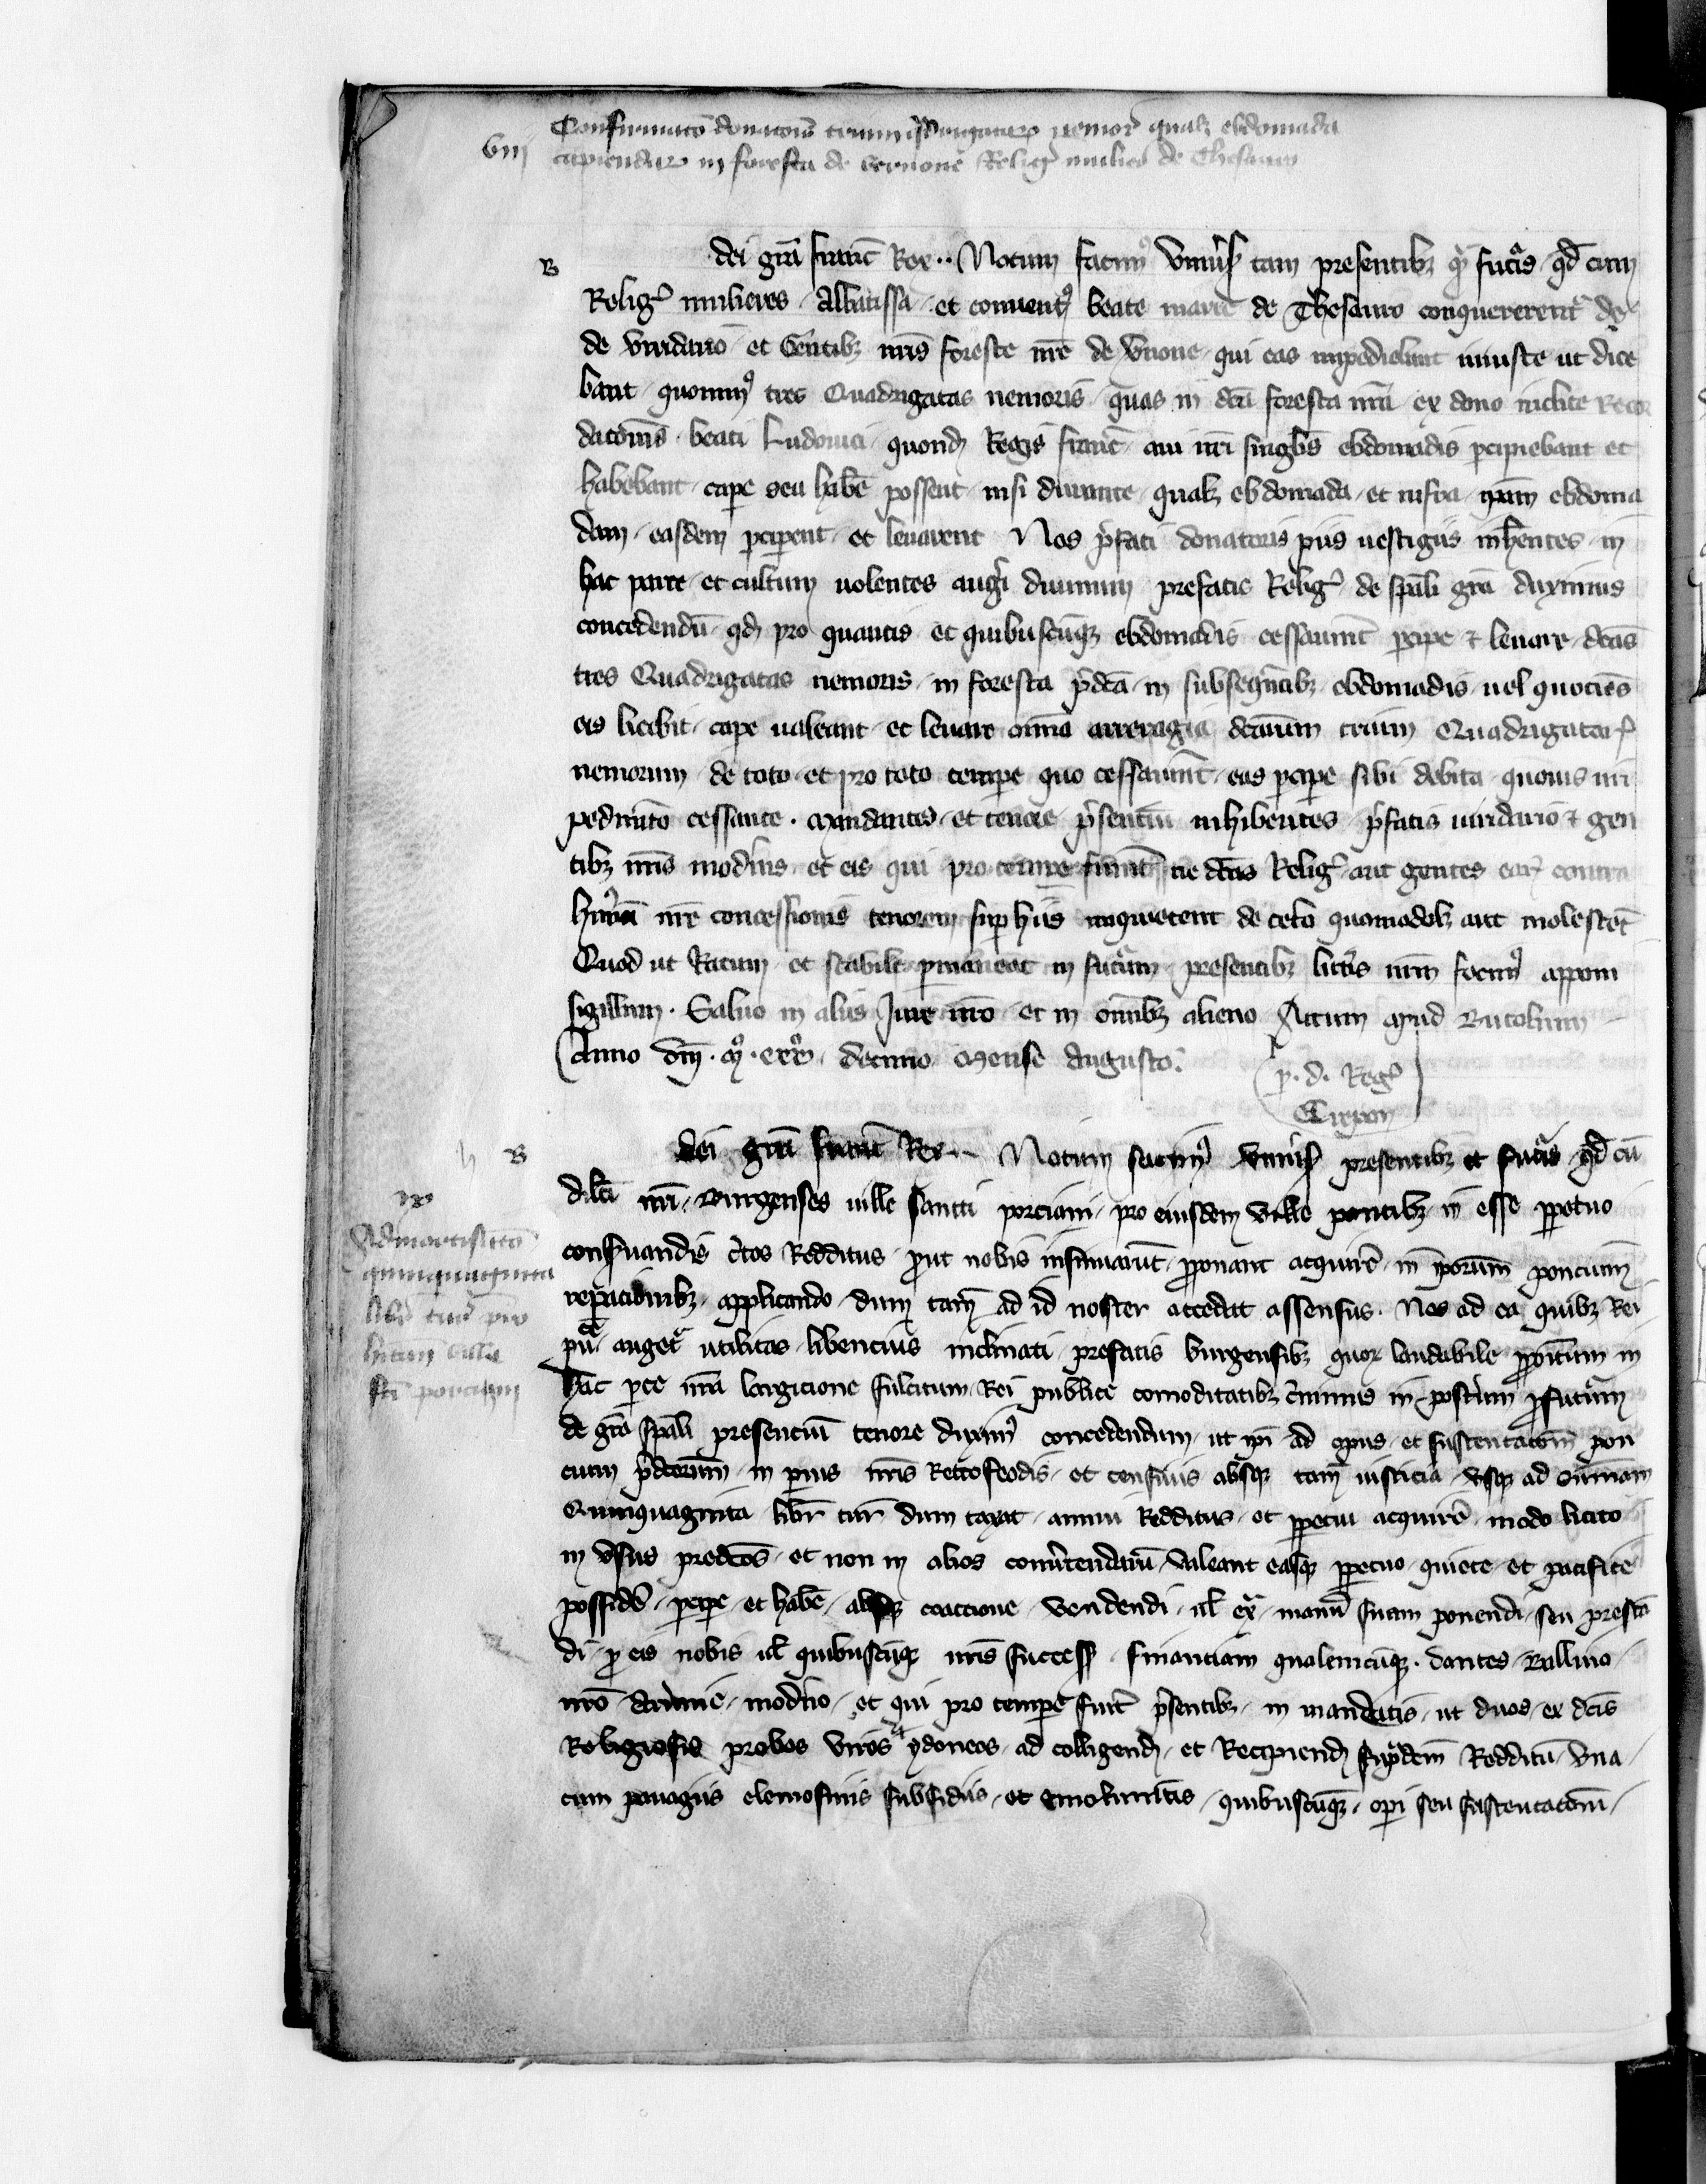 Confirmatō donatōis trium qadrigatarꝝ nemorꝭ qualꝫ ebdomada
viij capiendarꝝ in foresta de vernone Religꝭ mulierꝭ de Thesauro
B
dei grā Francͥ Rex ·· Notum facimꝰ Univ̾sis tam presentibꝫ qͣ futͣis qd̄ cum
Religꝭ mulieres Abbatissa et conuentꝰ beate marie de Thesauro conquererentͬ de
de viridario et Gentibꝫ nr̄is foreste nr̄e de v̾none qui eas impediebant iniuste ut dice
bant quominꝰ tres Quadrigatas nemoris quas in dcā foresta nr̄a ex dono inclite Recor
datōnis beati Ludouici quondꝫ Regis francͥ aui nr̄i singlīs ebdomadis ꝑcipiebant et
habebant caꝑe seu habē possent nisi durante qualꝫ ebdomada et infra ipām ebdoma
dam easdem ꝑciꝑent et leuarent Nos p̾fati donatoris piis uestigiis inhērentes in
hac parte et cultum uolentes augeri diuinum prefatis Religꝭ de spāli grā duximus
concedendū qd̄ pro quantis et quibuscūqꝫ ebdomadis cessauerīnt ꝑciꝑe ⁊ leuare dcās
tres Quadrigatas nemoris in foresta p̾dcā in subseqn̄tibꝫ ebdomadis uel quociēs
eis licebit caꝑe ualeant et leuare om̄ia arreragia dcārum trium Quadrigatarꝝ
nemorum de toto et pro toto temꝑe quo cessauerīnt eas ꝑciꝑe sibi debita quouis im
pedimēto cessante . Mandantes et tenore p̾sentiū inhibentes p̾fatis uiridario ⁊ gen
tibꝫ nr̄is modernis et eis qui pro temꝑe fuerīnt ne dcās Religꝭ aut gentes earꝝ contra
huiꝰ nr̄e concessionis tenorem suꝑ hiis inquietent de cetō quomodolꝫ aut molestēt
Quod ut Ratum et stabile ꝑmaneat in futͣum presentibꝫ litt̾is nr̄m fecimꝰ apponi
sigillum . Saluo in aliis Iure nr̄o et in om̄ibꝫ alieno Actum apud
Anno dnī . mͦ . cccͦ . decimo Mense Augusto.
p. d. Regꝭ
B
dei grā Francͥ Rex .. Notum facimꝰ Univ̾sis presentibꝫ et futͣis qd̄ cū
dilcī nr̄i Burgenses uille Sancti porciani pro eiusdem ville pontibꝫ in esse ꝑpetuo
conseruandis c̾tos Redditus ꝓut nobis insinuarūt ꝓponant acquirē in ipōrum poncium
reparacionibꝫ applicando dum tam̄ ad id noster accedat assensus . Nos ad ea quibꝫ Rei
pu̅ce augetͬ utilitas libencius inclinati prefatis burgensibꝫ quorꝝ laudabile ꝓpōitum in
hac ꝑte nr̄a largicione fulcitum Rei publice comoditatibꝫ c̾nimus in post̾um ꝓfuturum
de grā spāli presencium tenore duximꝰ concedendum ut ipī ad opus et sustentatōem pon
cium p̾dcōrum in ꝑtius nr̄is Retrofeodis et censiuis absqꝫ tam̄ iusticia usqꝫ ad sūmam
Quinquaginta libr̄ tur̄ dum taxat annui Redditus et ꝑpetui acquirē modo licito
in vsus predcōs et non in alios conu̾tendarū valeant easqꝫ ꝑpetuo quiete et pacifice
possidē ꝑciꝑe et habē absqꝫ coactione vendendi uł exͣ manū suam ponendi seu prestā
di ꝓ eis nobis uł quibuscūqꝫ nr̄is success̄ financiam qualemcūqꝫ . dantes Balliuo
nr̄o aruernie modr̄no et qui pro temꝑe fuer̄t p̾sentibꝫ in mandatis ut duos ex dcīs
Religiosis probos viros et ydoneos ad colligendꝫ et Recipiendꝫ supͣdcm̄ Redditū vna
cum pauagiis elemosinis subsidiis et emolumētis quibuscūqꝫ opi seu sustentatōni
Admortisatō
quinquaginta
libr̄ tur̄ pro
uille
sti porciani